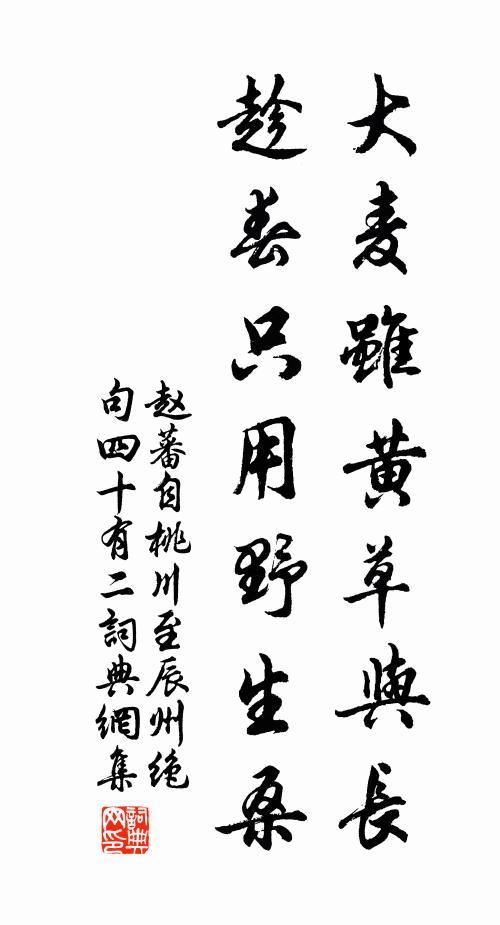 大麦雖黄草與長
趁春只用野生桑
赵蕃自桃川至辰州绝
句四十有二詞典網集
詞典
网印